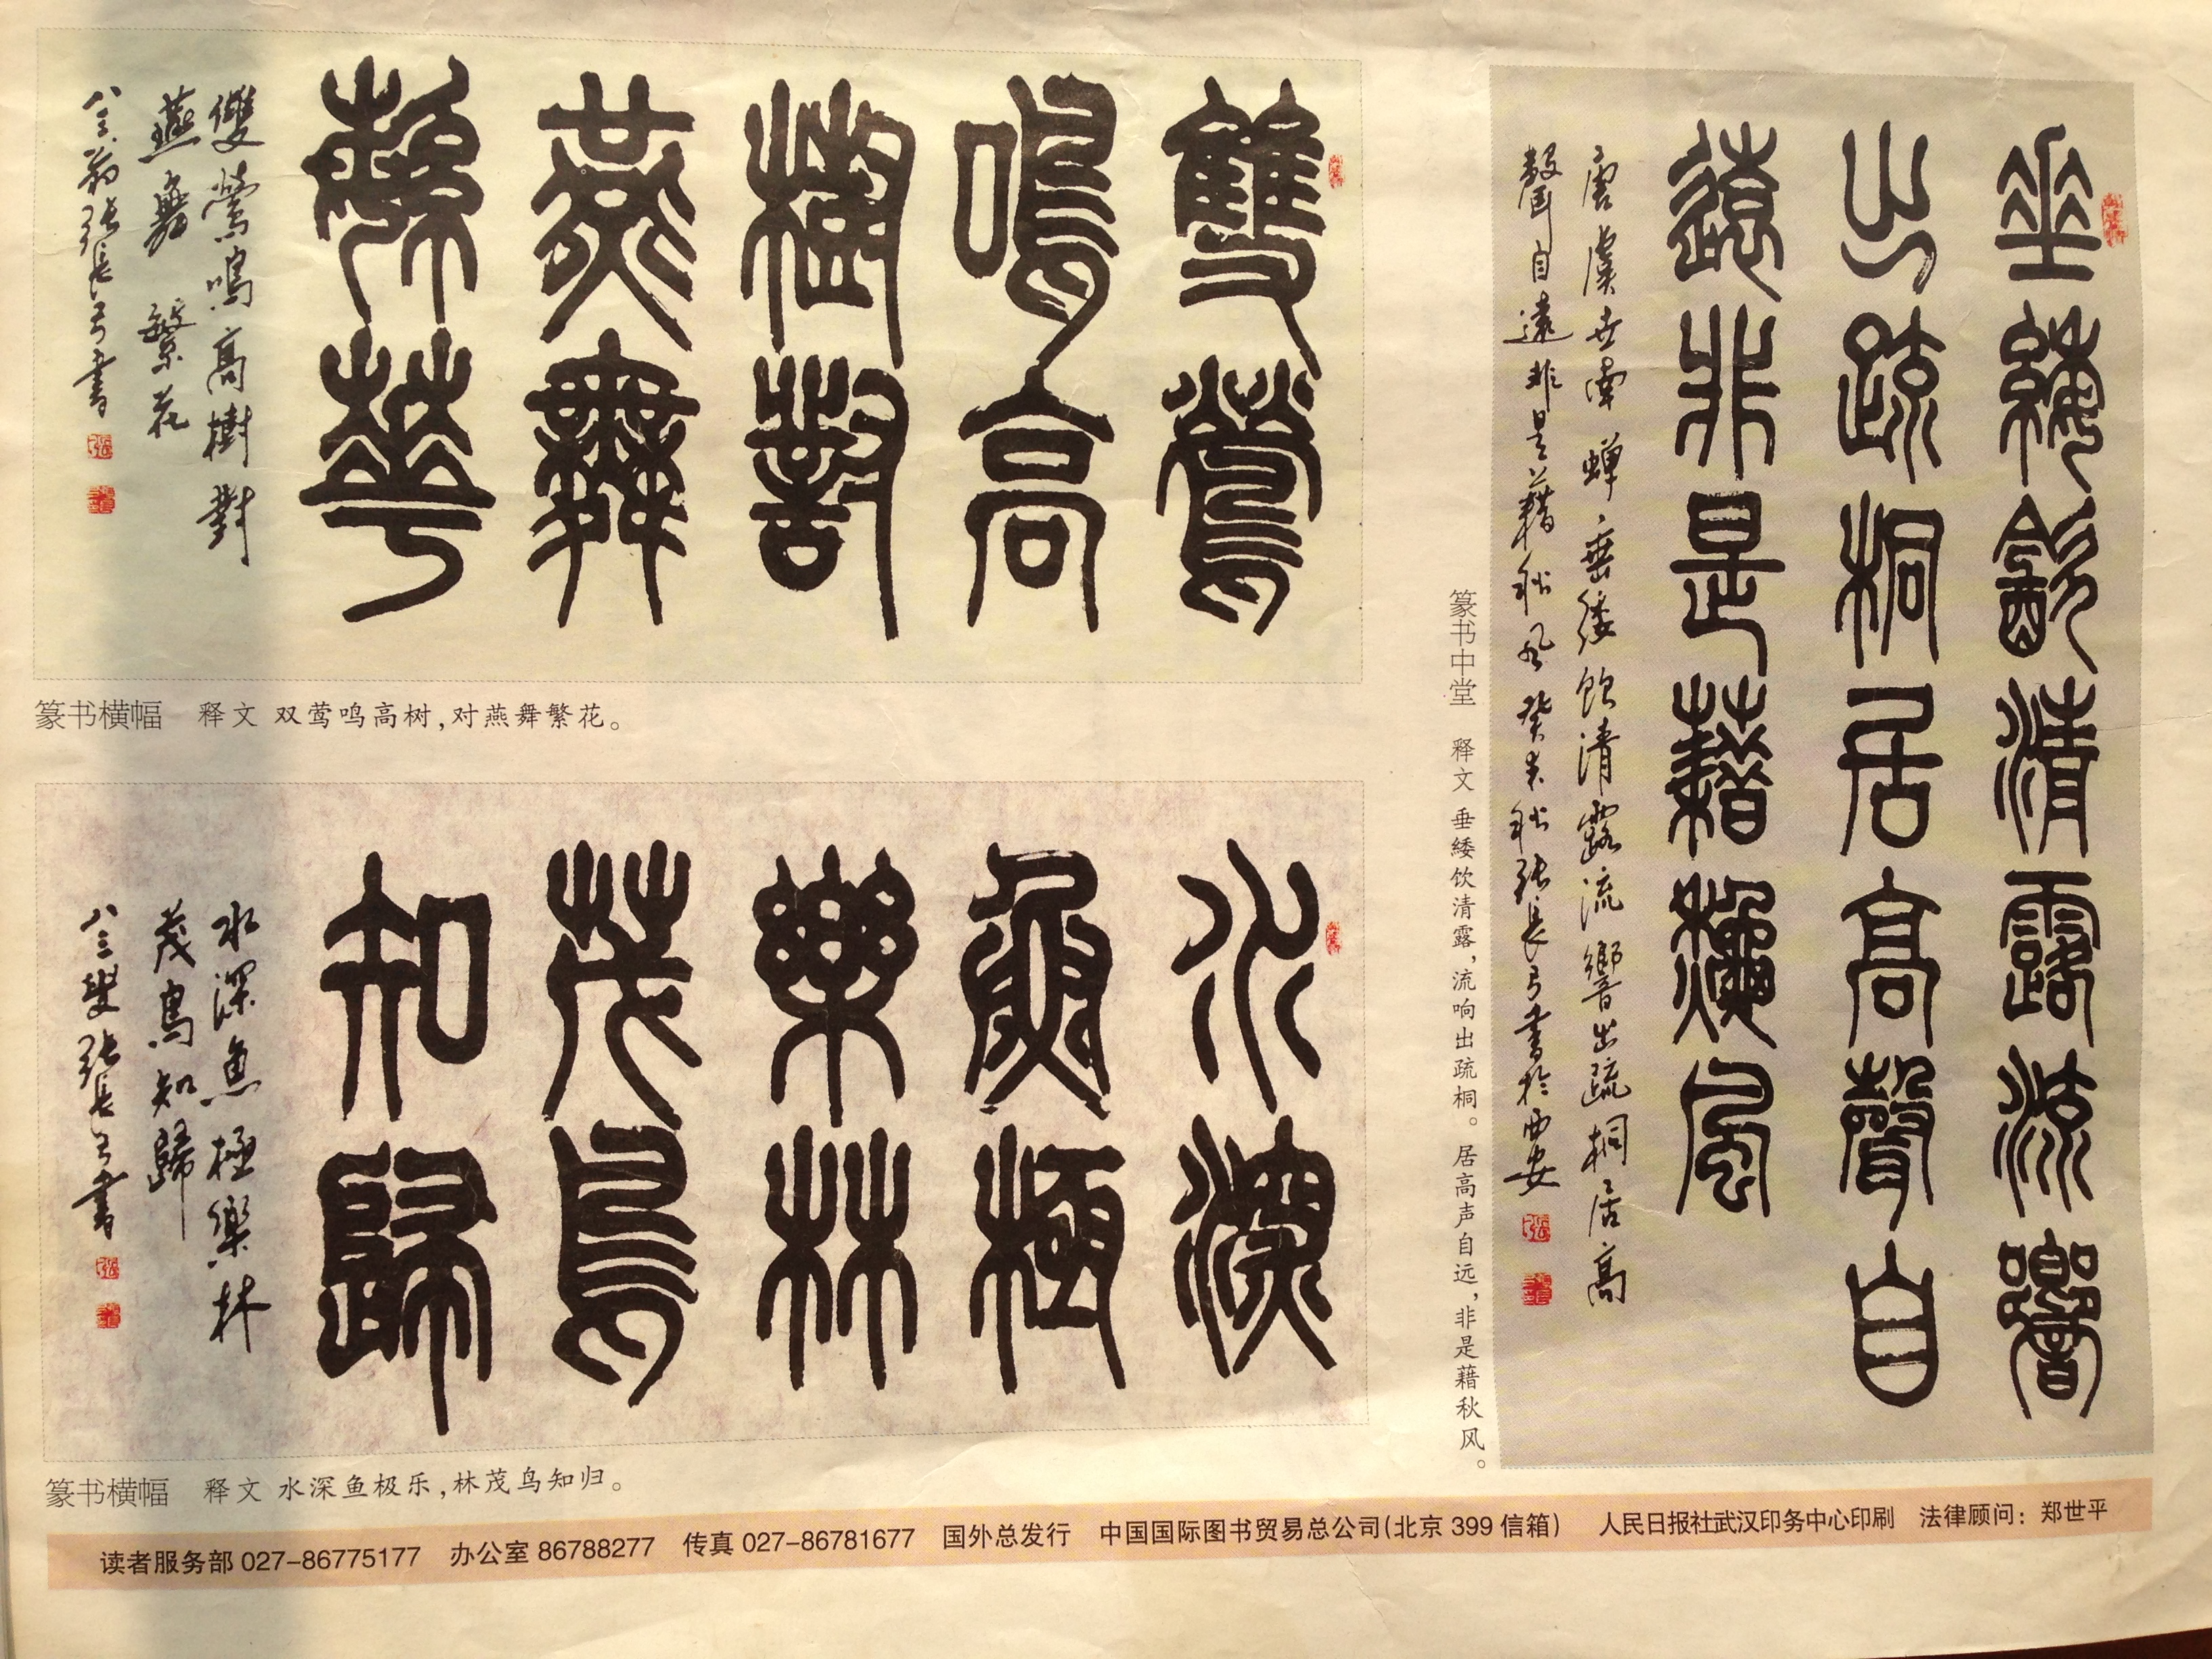 雙鶯
鳴高
樹對
燕舞
繁華
雙鶯鳴高樹對
燕舞繁花
八三翁張長弓書
篆书横幅 释文 双莺鸣高树,对燕舞繁花。
水深
魚極
樂林
茂鳥
知歸
水深魚極樂林
茂鳥知歸
八三叟張長弓書
篆书横幅 释文 水深鱼极乐,林茂鸟知归。
垂緌飲清露流響
出疏桐居高聲自
遠非是藉秋風
唐虞世南蟬垂緌飲清露流響出疏桐居高
聲自遠非是藉秋風 癸未秋張長弓書於西安
篆书中堂 释文 垂緌饮清露,流响出疏桐。居高声自远,非是藉秋风。
读者服务部 027-86775177 办公室 86788277 传真 027-86781677 国外总发行 中国国际图书贸易总公司(北京 399 信箱) 人民日报社武汉印务中心印刷 法律顾问：郑世平